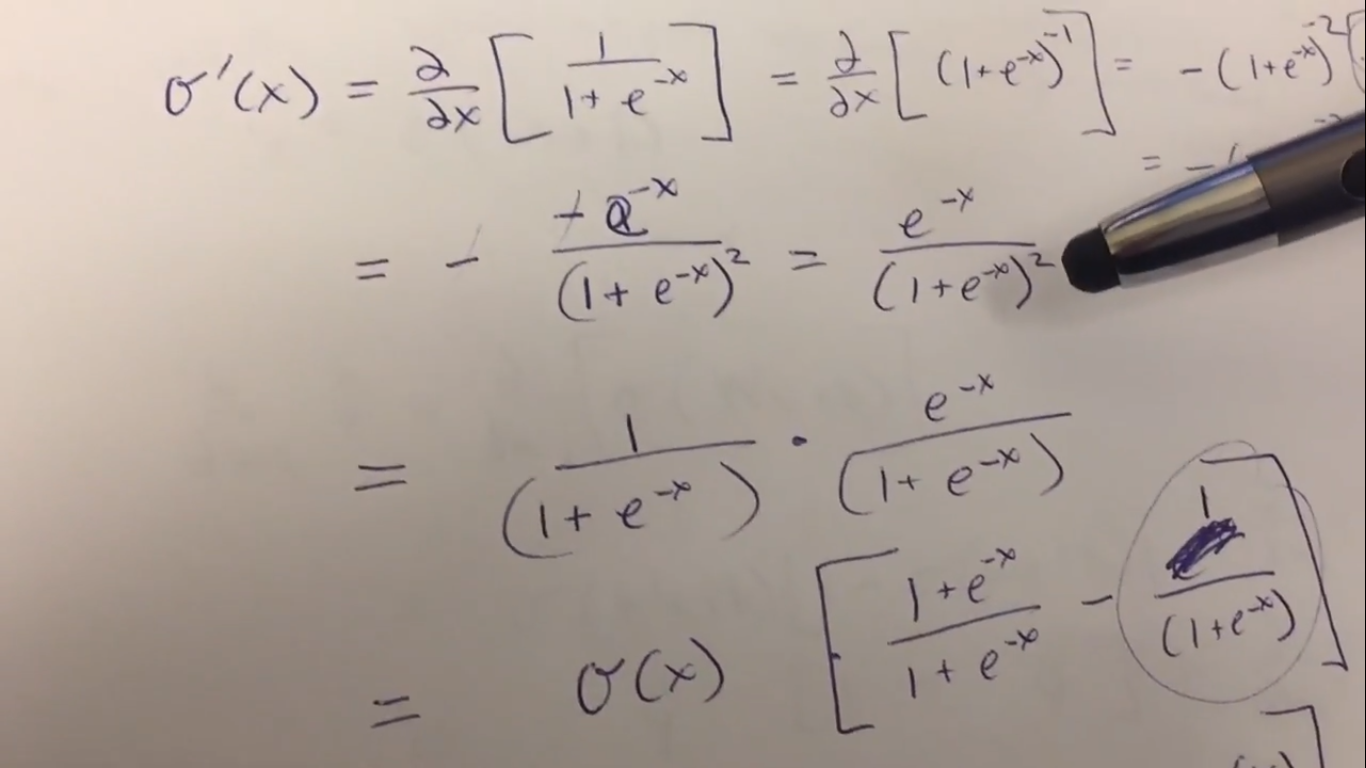 σ'(x) = ∂/∂x [ 1/(1+e^-x) ] = ∂/∂x [ (1+e^-x)^-1 ] = -(1+e^-x)^-2 (
= -(
= - -e^-x/(1+e^-x)^2 = e^-x/(1+e^-x)^2
= 1/(1+e^-x) · e^-x/(1+e^-x)
= σ(x) [ (1+e^-x)/(1+e^-x) - 1/(1+e^-x) ]
(x) ]